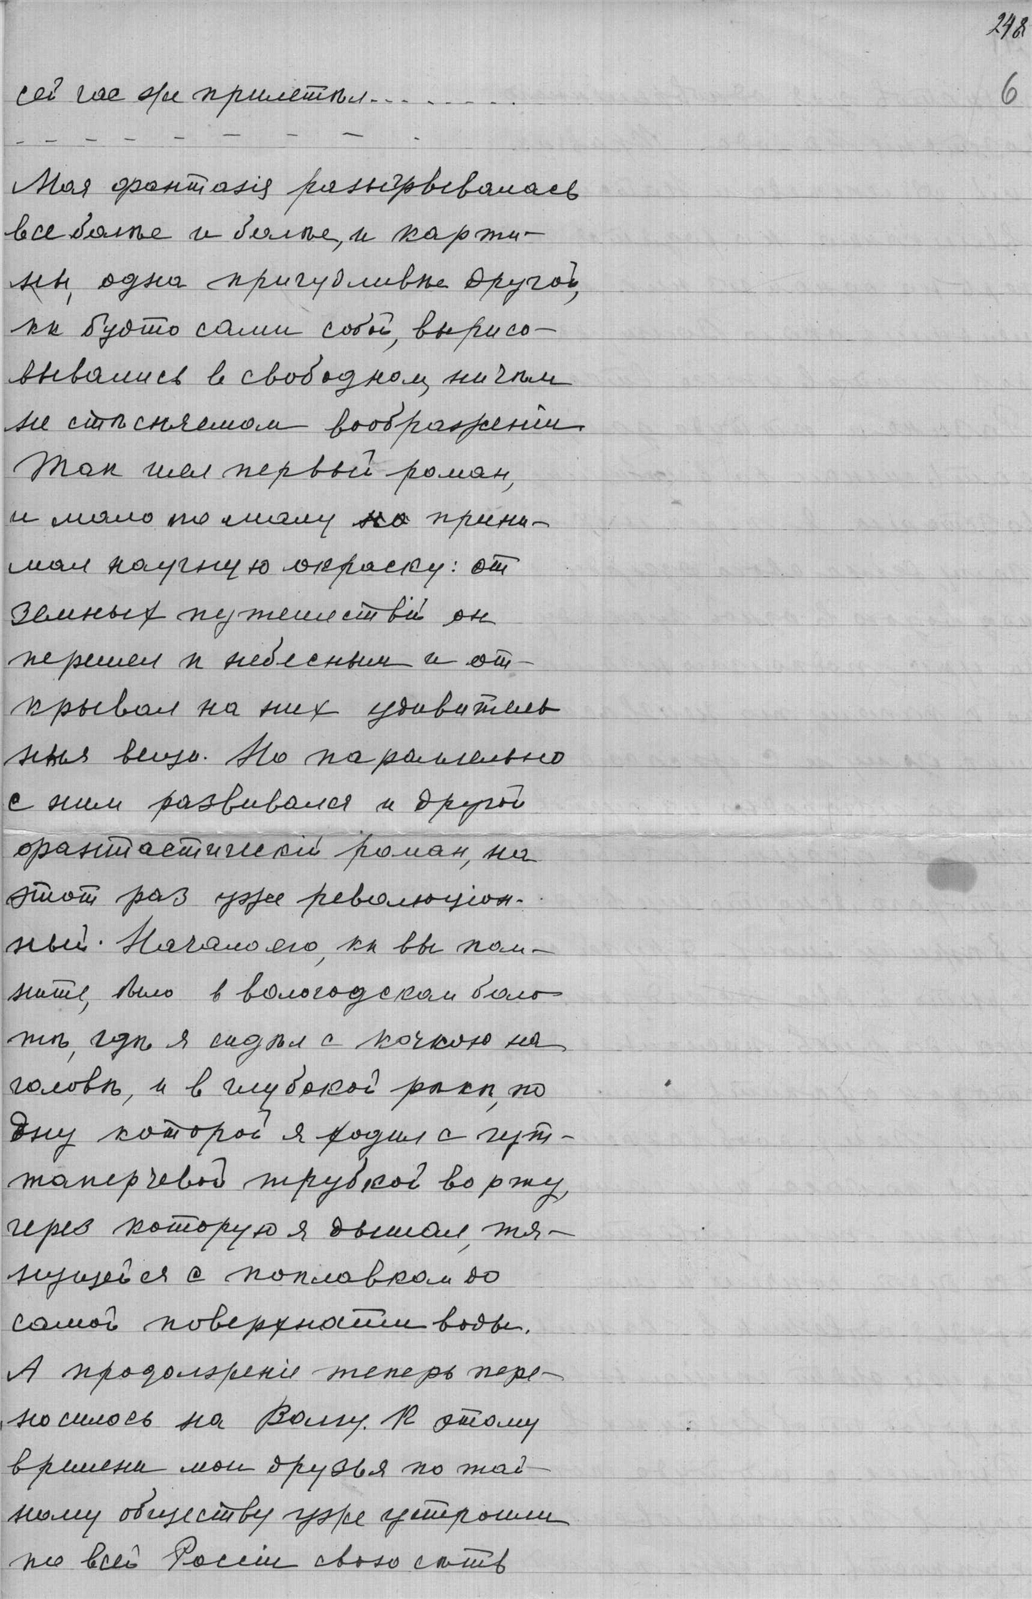 248
6
сей час же прилетѣл........
- - - - - - - - -
Мая фантазія разыгрывалась
все болѣе и болѣе, и карти-
ны, одна причудливѣе другой,
кк будто сами собой, вырисо-
вывались в свободном, ничѣм
не стѣсняемом воображеніи.
Так шел первый роман,
и мало по малу прини-
мал научную окраску: от
земных путешествій он
перешел к небесным и от-
крывал на них удивитель
ныя вещи. Но параллельно
с ним развивался и другой
фантастическій роман, на
этот раз уже революціон-
ный. Начало его, кк вы пом-
ните, было в вологодском боло-
тѣ, гдѣ я сидѣл с кочкою на
головѣ, и в глубокой рѣкѣ, по
дну которой я ходил с гут-
таперчевой трубкой во рту,
через которую я дышал, тя-
нущейся с поплавком до
самой поверхности воды.
А продолженіе теперь пере-
носилось на Волгу. К этому
времени мои друзья по тай-
ному обществу уже устроили
по всей Россіи свою сѣть